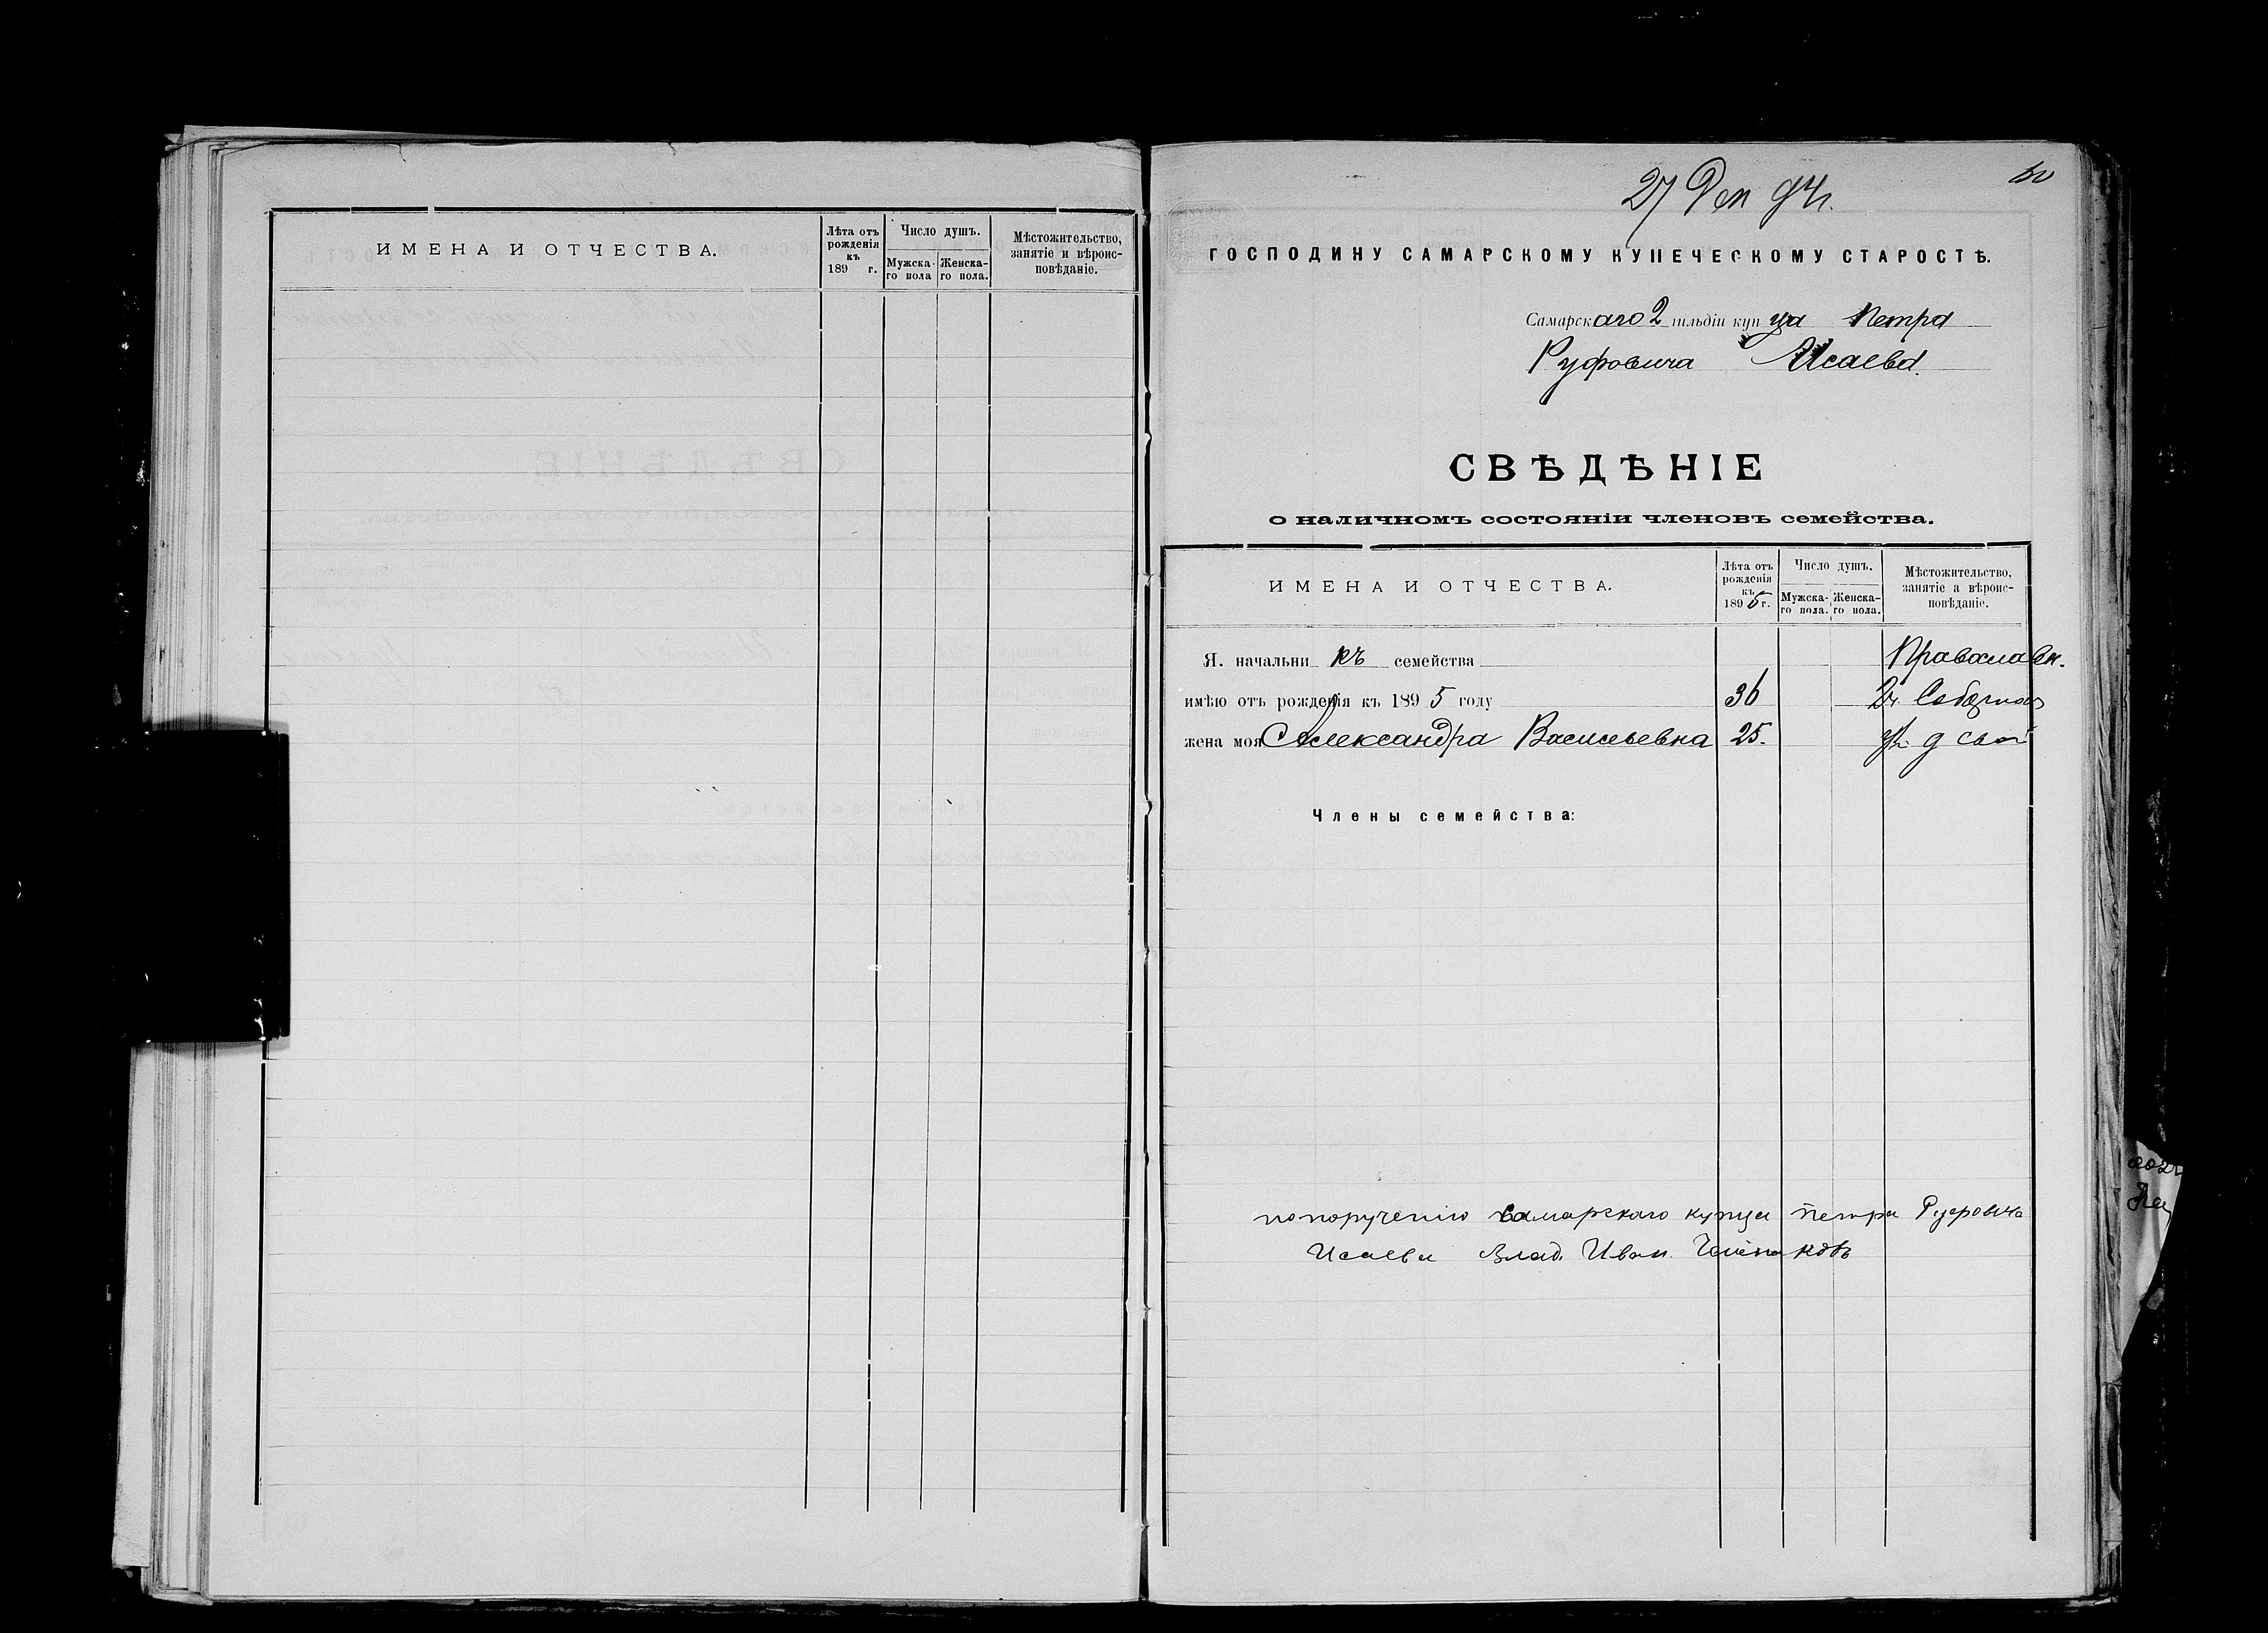 ИМЕНА И ОТЧЕСТВА.
Лѣта отъ рожденія къ 189 г.
Число душъ.
Мужска-го пола
Женска-го пола.
Мѣстожительство, занятіе и вѣроис-повѣданіе.
27 Дек 94 г.
ГОСПОДИНУ САМАРСКОМУ КУПЕЧЕСКОМУ СТАРОСТѢ.
Самарскаго 2 гильдіи купца Петра
Руфовича Исаева.
СВѢДѢНІЕ
о наличномъ состояніи членовъ семейства.
ИМЕНА И ОТЧЕСТВА.
Лѣта отъ рожденія къ 1895 г.
Число душъ.
Мужска-го пола.
Женска-го пола.
Мѣстожительство, занятіе а вѣроис-повѣданіе.
Я. начальникъ семейства Православн.
имѣю отъ рожденія къ 1895 году 36 2 ч. Соборной
жена моя Александра Васильевна 25. д свой
Члены семейства:
по порученію Самарскаго купца Петра Руфовича
Исаева Влад. Иван.